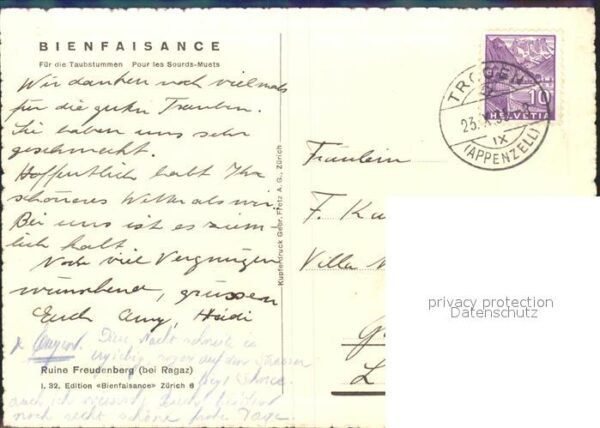 BIENFAISANCE
Für die Taubstummen Pour les Sourds-Muets
Wir danken noch vielmals
für die guten Trauben.
Sie haben uns sehr
geschmeckt.
Hoffentlich habt Ihr
schöneres Wetter als wir.
Bei uns ist es ziem-
lich kalt.
Noch viel Vergnügen
wünschend, grüssen
Euch Amy, Heidi
Nacht schneite es
ergiebig, auf den Strassen
liegt Schnee.
auch ich wünsche Euch beiden
noch recht schöne frohe Tage.
Ruine Freudenberg (bei Ragaz)
I. 32. Edition «Bienfaisance» Zürich 6
Kupferdruck Gebr. Fretz A. G., Zürich
HELVETIA
10
TROGEN
23. X.
IX
(APPENZELL)
Fräulein
F. Ku
Villa
privacy protection
Datenschutz